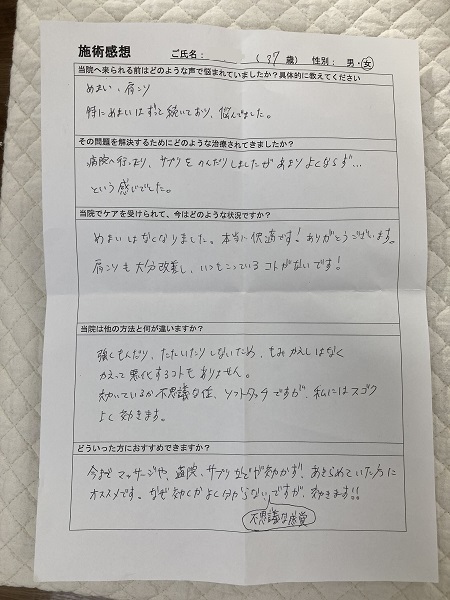 施術感想 ご氏名： （37歳） 性別： 男・女
当院へ来られる前はどのような声で悩まれていましたか？具体的に教えてください
めまい、肩こり
特にめまいはずっと続いており、悩んでました。
その問題を解決するためにどのような治療されてきましたか？
病院へ行ったり、サプリをのんだりしましたがあまりよくならず…
という感じでした。
当院でケアを受けられて、今はどのような状況ですか？
めまいはなくなりました。本当に快適です！ありがとうございます。
肩こりも大分改善し、いつもこっているコトがないです！
当院は他の方法と何が違いますか？
強くもんだり、たたいたりしないため、もみかえしはなく
かえって悪化するコトもありません。
効いているか不思議な位、ソフトタッチですが、私にはスゴク
よく効きます。
どういった方におすすめできますか？
今までマッサージや、病院、サプリなどが効かず、あきらめていた方に
オススメです。なぜ効くかよく分からないですが、効きます!!
不思議な感覚